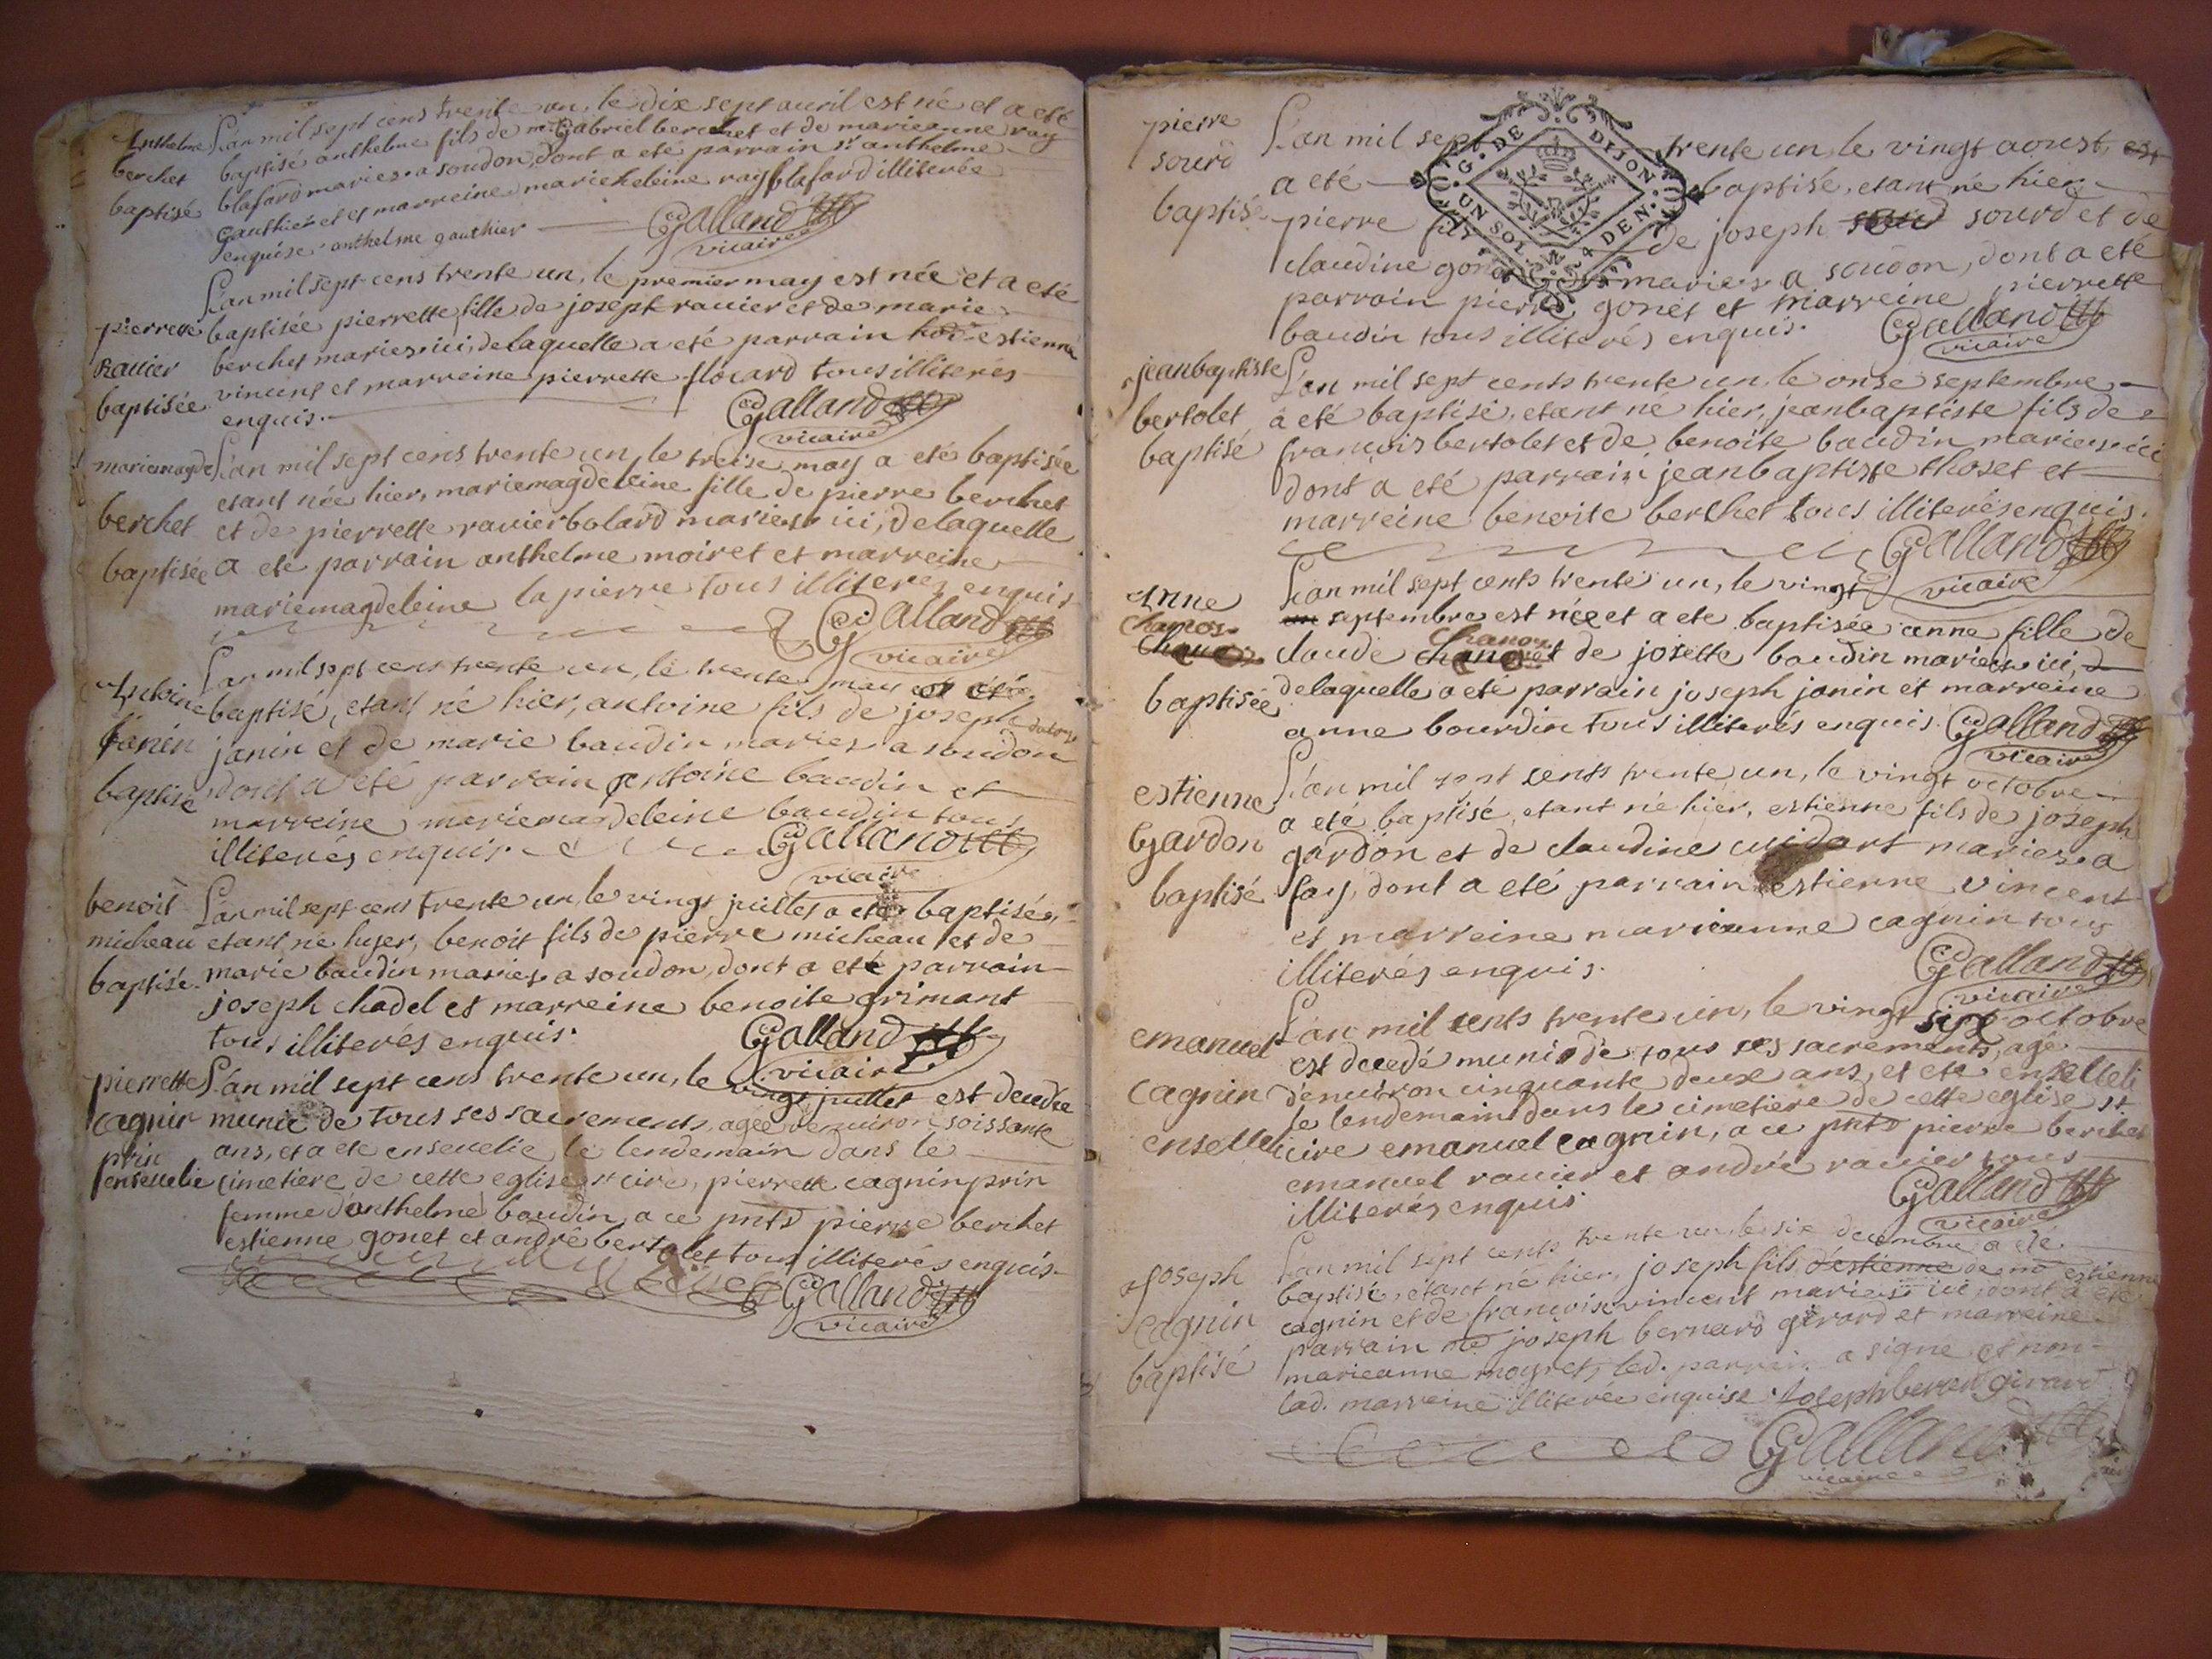 Anthelme
berchet
baptisé
L'an mil sept cens trente un, le dix sept auril est né et a eté
baptisé anthelme fils de mr Gabriel berchet et de marieanne ray
blafard maries a soudon, dont a eté parrain sr anthelme
Gauthier et et marreine marieheleine ray blafard illiterée
enquise. anthelme gauthier
Galland
vicaire
pierrette
Rauier
baptisée
L'an mil sept cens trente un, le premier may est née et a eté
baptisée pierrette fille de joseph rauier et de marie
berchet maries ici, delaquelle a eté parrain estienne
vincent et marreine pierrette flocard tous illiterés
enquis.
Galland
vicaire
mariemagde
berchet
baptisée
L'an mil sept cens trente un, le treise may a eté baptisée
etant née hier, mariemagdeleine fille de pierre berchet
et de pierrette rauier bolard maries ici, delaquelle
a eté parrain anthelme moiret et marreine
mariemagdeleine lapierre tous illiterez enquis
Galland
vicaire
Antoine
janin
baptisé
L'an mil sept cens trente un, le trente may a eté
baptisé, etant né hier, antoine fils de joseph
janin et de marie baudin maries a soudon
dont a eté parrain antoine baudin et
marreine mariemagdeleine baudin tous
illiterés enquis.
Galland
vicaire
benoit
micheau
baptisé.
L'an mil sept cens trente un, le vingt juillet a eté baptisé,
etant né hyer, benoit fils de pierre micheau et de
marie baudin maries a soudon, dont a eté parrain
joseph chadel et marreine benoite grimant
tous illiterés enquis.
Galland
vicaire
pierrette
cagnin
prin
enseuelie
L'an mil sept cens trente un, le vingt juillet est decedée
munie de tous ses sacrements, agée denuiron soissante
ans, et a eté enseuelie le lendemain dans le
cimetiere de cette eglise st cire, pierrette cagnin prin
femme d'anthelme baudin, a ce pnts pierre berchet
estienne gonet et andré bertolet tous illiterés enquis.
Galland
vicaire
pierre
sourd
baptisé
G. DE DIJON
UN SOL 4 DEN.
L'an mil sept trente un, le vingt aoust, est
a eté baptisé, etant né hier
pierre fils de joseph sourd et de
claudine gonet maries a soudon, dont a eté
parrain pierre gonet et marreine pierrette
baudin tous illiterés enquis.
Galland
vicaire
jeanbaptiste
bertolet
baptisé
L'an mil sept cents trente un, le onse septembre
a eté baptisé, etant né hier, jeanbaptiste fils de
francois bertolet et de benoite baudin maries ici
dont a eté parrain jeanbaptiste thoset et
marreine benoite berchet tous illiterés enquis.
Galland
vicaire
Anne
Chanos
baptisée
L'an mil sept cents trente un, le vingt
septembre est née et a eté baptisée anne fille de
claude et de josette baudin maries ici,
delaquelle a eté parrain joseph janin et marreine
anne bourdin tous illiterés enquis.
Galland
vicaire
estienne
Gardon
baptisé
L'an mil sept cents trente un, le vingt octobre
a eté baptisé, etant né hier, estienne fils de joseph
gardon et de claudine cuidart maries a
fay, dont a eté parrain estienne vincent
et marreine marieanne cagnin tous
illiterés enquis.
Galland
vicaire
emanuel
cagnin
enseueli
L'an mil cents trente un, le vingt sept octobre
est decedé munis de tous ses sacrements, agé
denuiron cinquante deux ans, et eté enseueli
le lendemain dans le cimetiere de cette eglise st
cire emanuel cagnin, a ce pnts pierre berchet
emanuel rauier et andré rauier tous
illiterés enquis
Galland
vicaire
joseph
cagnin
baptisé
L'an mil sept cents trente un le six decembre a eté
baptisé, étant né hier, joseph fils d'estienne de mr estienne
cagnin et de francoise vincent maries ici, dont a eté
parrain joseph bernard girard et marreine
marieanne moyret, led. parrain a signé et non
lad. marreine illiterée enquise. Joseph bernard girard
Galland
vicaire